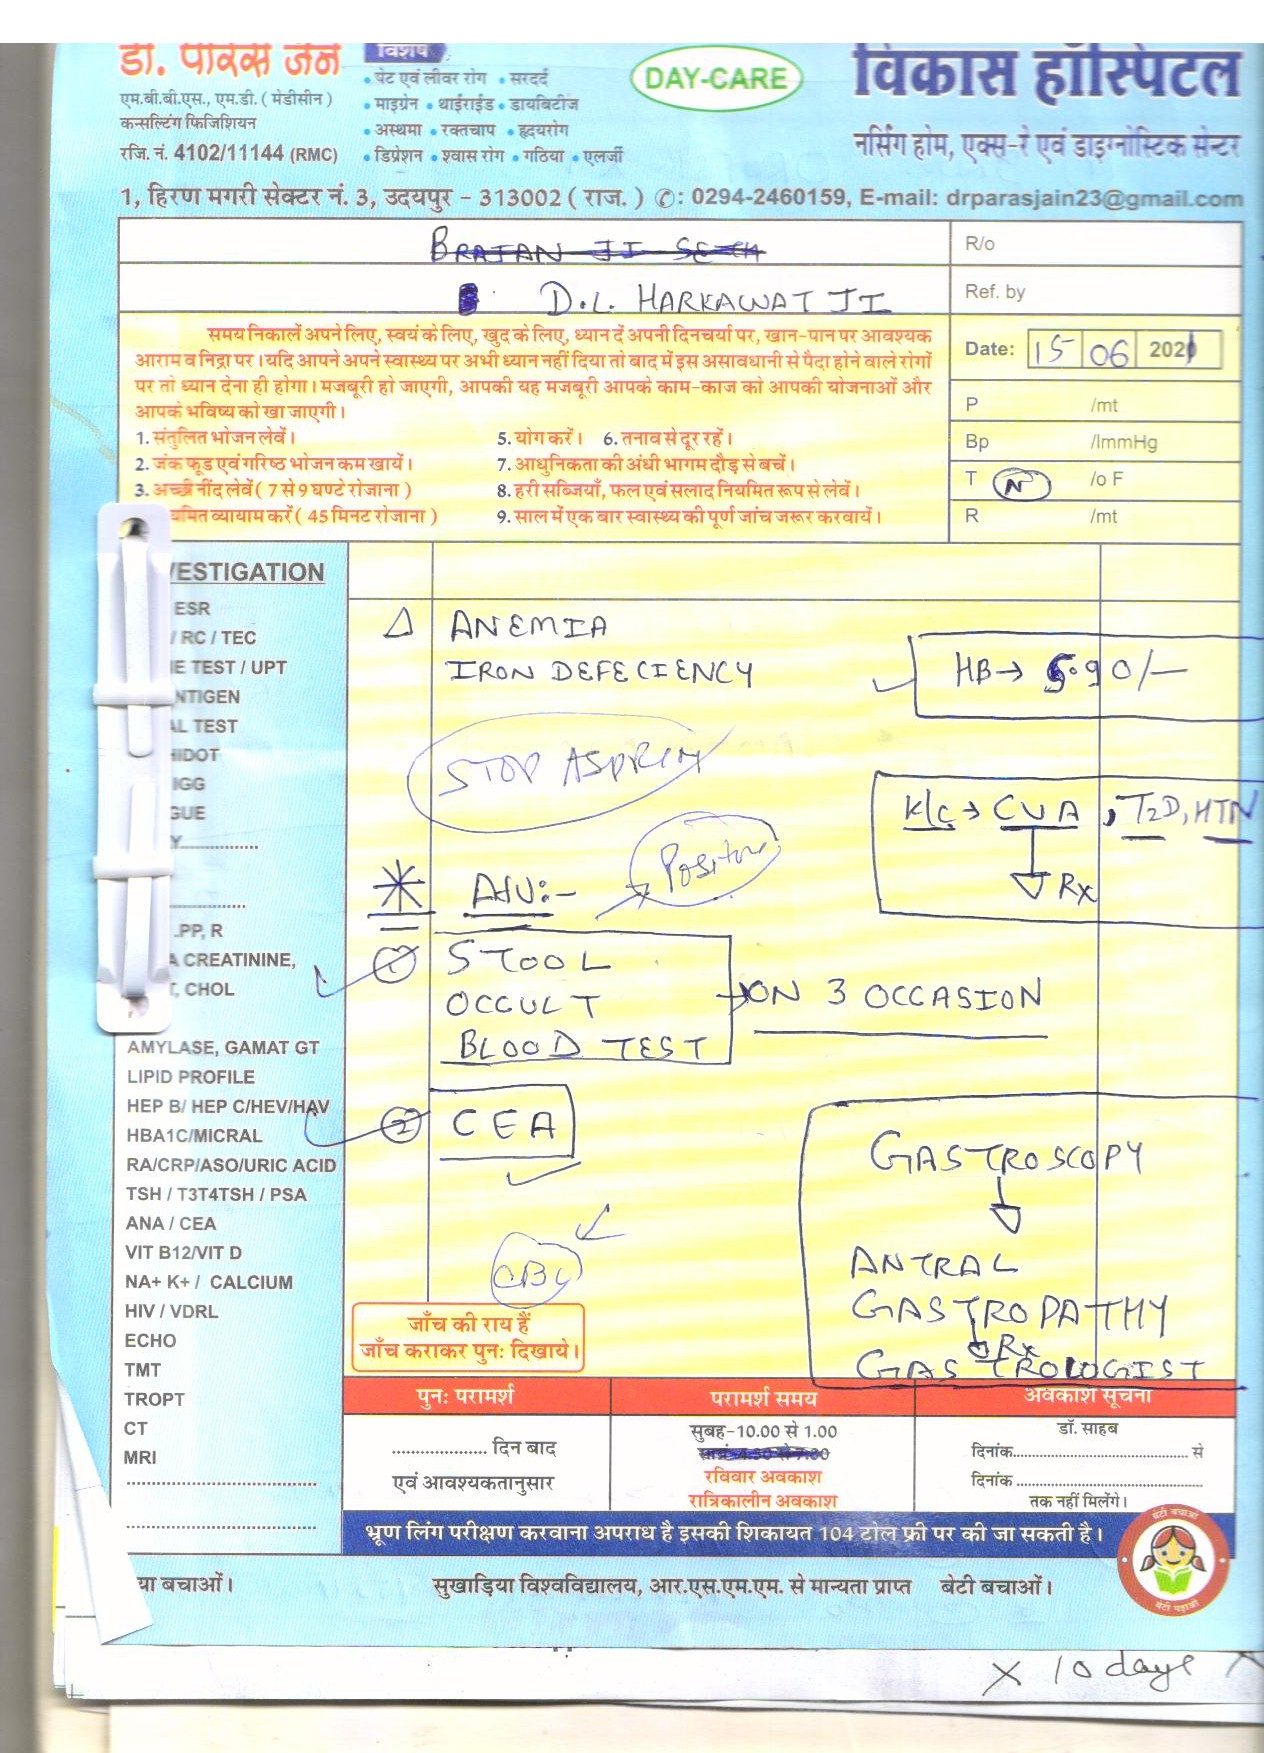 डॉ. पारस जैन
एम.बी.बी.एस., एम.डी. ( मेडीसीन )
कन्सल्टिंग फिजिशियन
रजि. नं. 4102/11144 (RMC)
विशेष
• पेट एवं लीवर रोग • सरदर्द
• माइग्रेन • थाईराईड • डायबिटीज
• अस्थमा • रक्तचाप • हृदयरोग
• डिप्रेशन • श्वास रोग • गठिया • एलर्जी
DAY-CARE
विकास हॉस्पिटल
नर्सिंग होम, एक्स-रे एवं डाइग्नोस्टिक सेन्टर
1, हिरण मगरी सेक्टर नं. 3, उदयपुर - 313002 ( राज. ) ✆: 0294-2460159, E-mail: drparasjain23@gmail.com
R/o
D.L. HARKAWAT JI
Ref. by
समय निकालें अपने लिए, स्वयं के लिए, खुद के लिए, ध्यान दें अपनी दिनचर्या पर, खान-पान पर आवश्यक
आराम व निद्रा पर। यदि आपने अपने स्वास्थ्य पर अभी ध्यान नहीं दिया तो बाद में इस असावधानी से पैदा होने वाले रोगों
पर तो ध्यान देना ही होगा। मजबूरी हो जाएगी, आपकी यह मजबूरी आपके काम-काज को आपकी योजनाओं और
आपके भविष्य को खा जाएगी।
1. संतुलित भोजन लेवें।
2. जंक फूड एवं गरिष्ठ भोजन कम खायें।
3. अच्छी नींद लेवें ( 7 से 9 घण्टे रोजाना )
यमित व्यायाम करें ( 45 मिनट रोजाना )
5. योग करें। 6. तनाव से दूर रहें।
7. आधुनिकता की अंधी भागम दौड़ से बचें।
8. हरी सब्जियाँ, फल एवं सलाद नियमित रूप से लेवें।
9. साल में एक बार स्वास्थ्य की पूर्ण जांच जरूर करवायें।
Date: 15 06 2021
P /mt
Bp /ImmHg
T N /o F
R /mt
VESTIGATION
ESR
/ RC / TEC
E TEST / UPT
NTIGEN
AL TEST
HIDOT
IGG
GUE
Y
.PP, R
A CREATININE,
T, CHOL
AMYLASE, GAMAT GT
LIPID PROFILE
HEP B/ HEP C/HEV/HAV
HBA1C/MICRAL
RA/CRP/ASO/URIC ACID
TSH / T3T4TSH / PSA
ANA / CEA
VIT B12/VIT D
NA+ K+ / CALCIUM
HIV / VDRL
ECHO
TMT
TROPT
CT
MRI
Δ ANEMIA
IRON DEFECIENCY
HB → 5.90/-
STOP ASPRIN
K/c → CVA, T2D, HTN
Rx
ADV:-
Positive
1 STOOL
OCCULT
BLOOD TEST
ON 3 OCCASION
2 CEA
CBC
GASTROSCOPY
ANTRAL
GASTROPATHY
Rx
GASTROLOGIST
जाँच की राय हैं
जाँच कराकर पुनः दिखाये।
पुनः परामर्श
.................... दिन बाद
एवं आवश्यकतानुसार
परामर्श समय
सुबह-10.00 से 1.00
रविवार अवकाश
रात्रिकालीन अवकाश
अवकाश सूचना
डॉ. साहब
दिनांक.................... से
दिनांक ....................
तक नहीं मिलेंगे।
भ्रूण लिंग परीक्षण करवाना अपराध है इसकी शिकायत 104 टोल फ्री पर की जा सकती है।
या बचाओं।
सुखाड़िया विश्वविद्यालय, आर.एस.एम.एम. से मान्यता प्राप्त
बेटी बचाओं।
बेटी बचाओ
बेटी पढ़ाओ
X 10 days